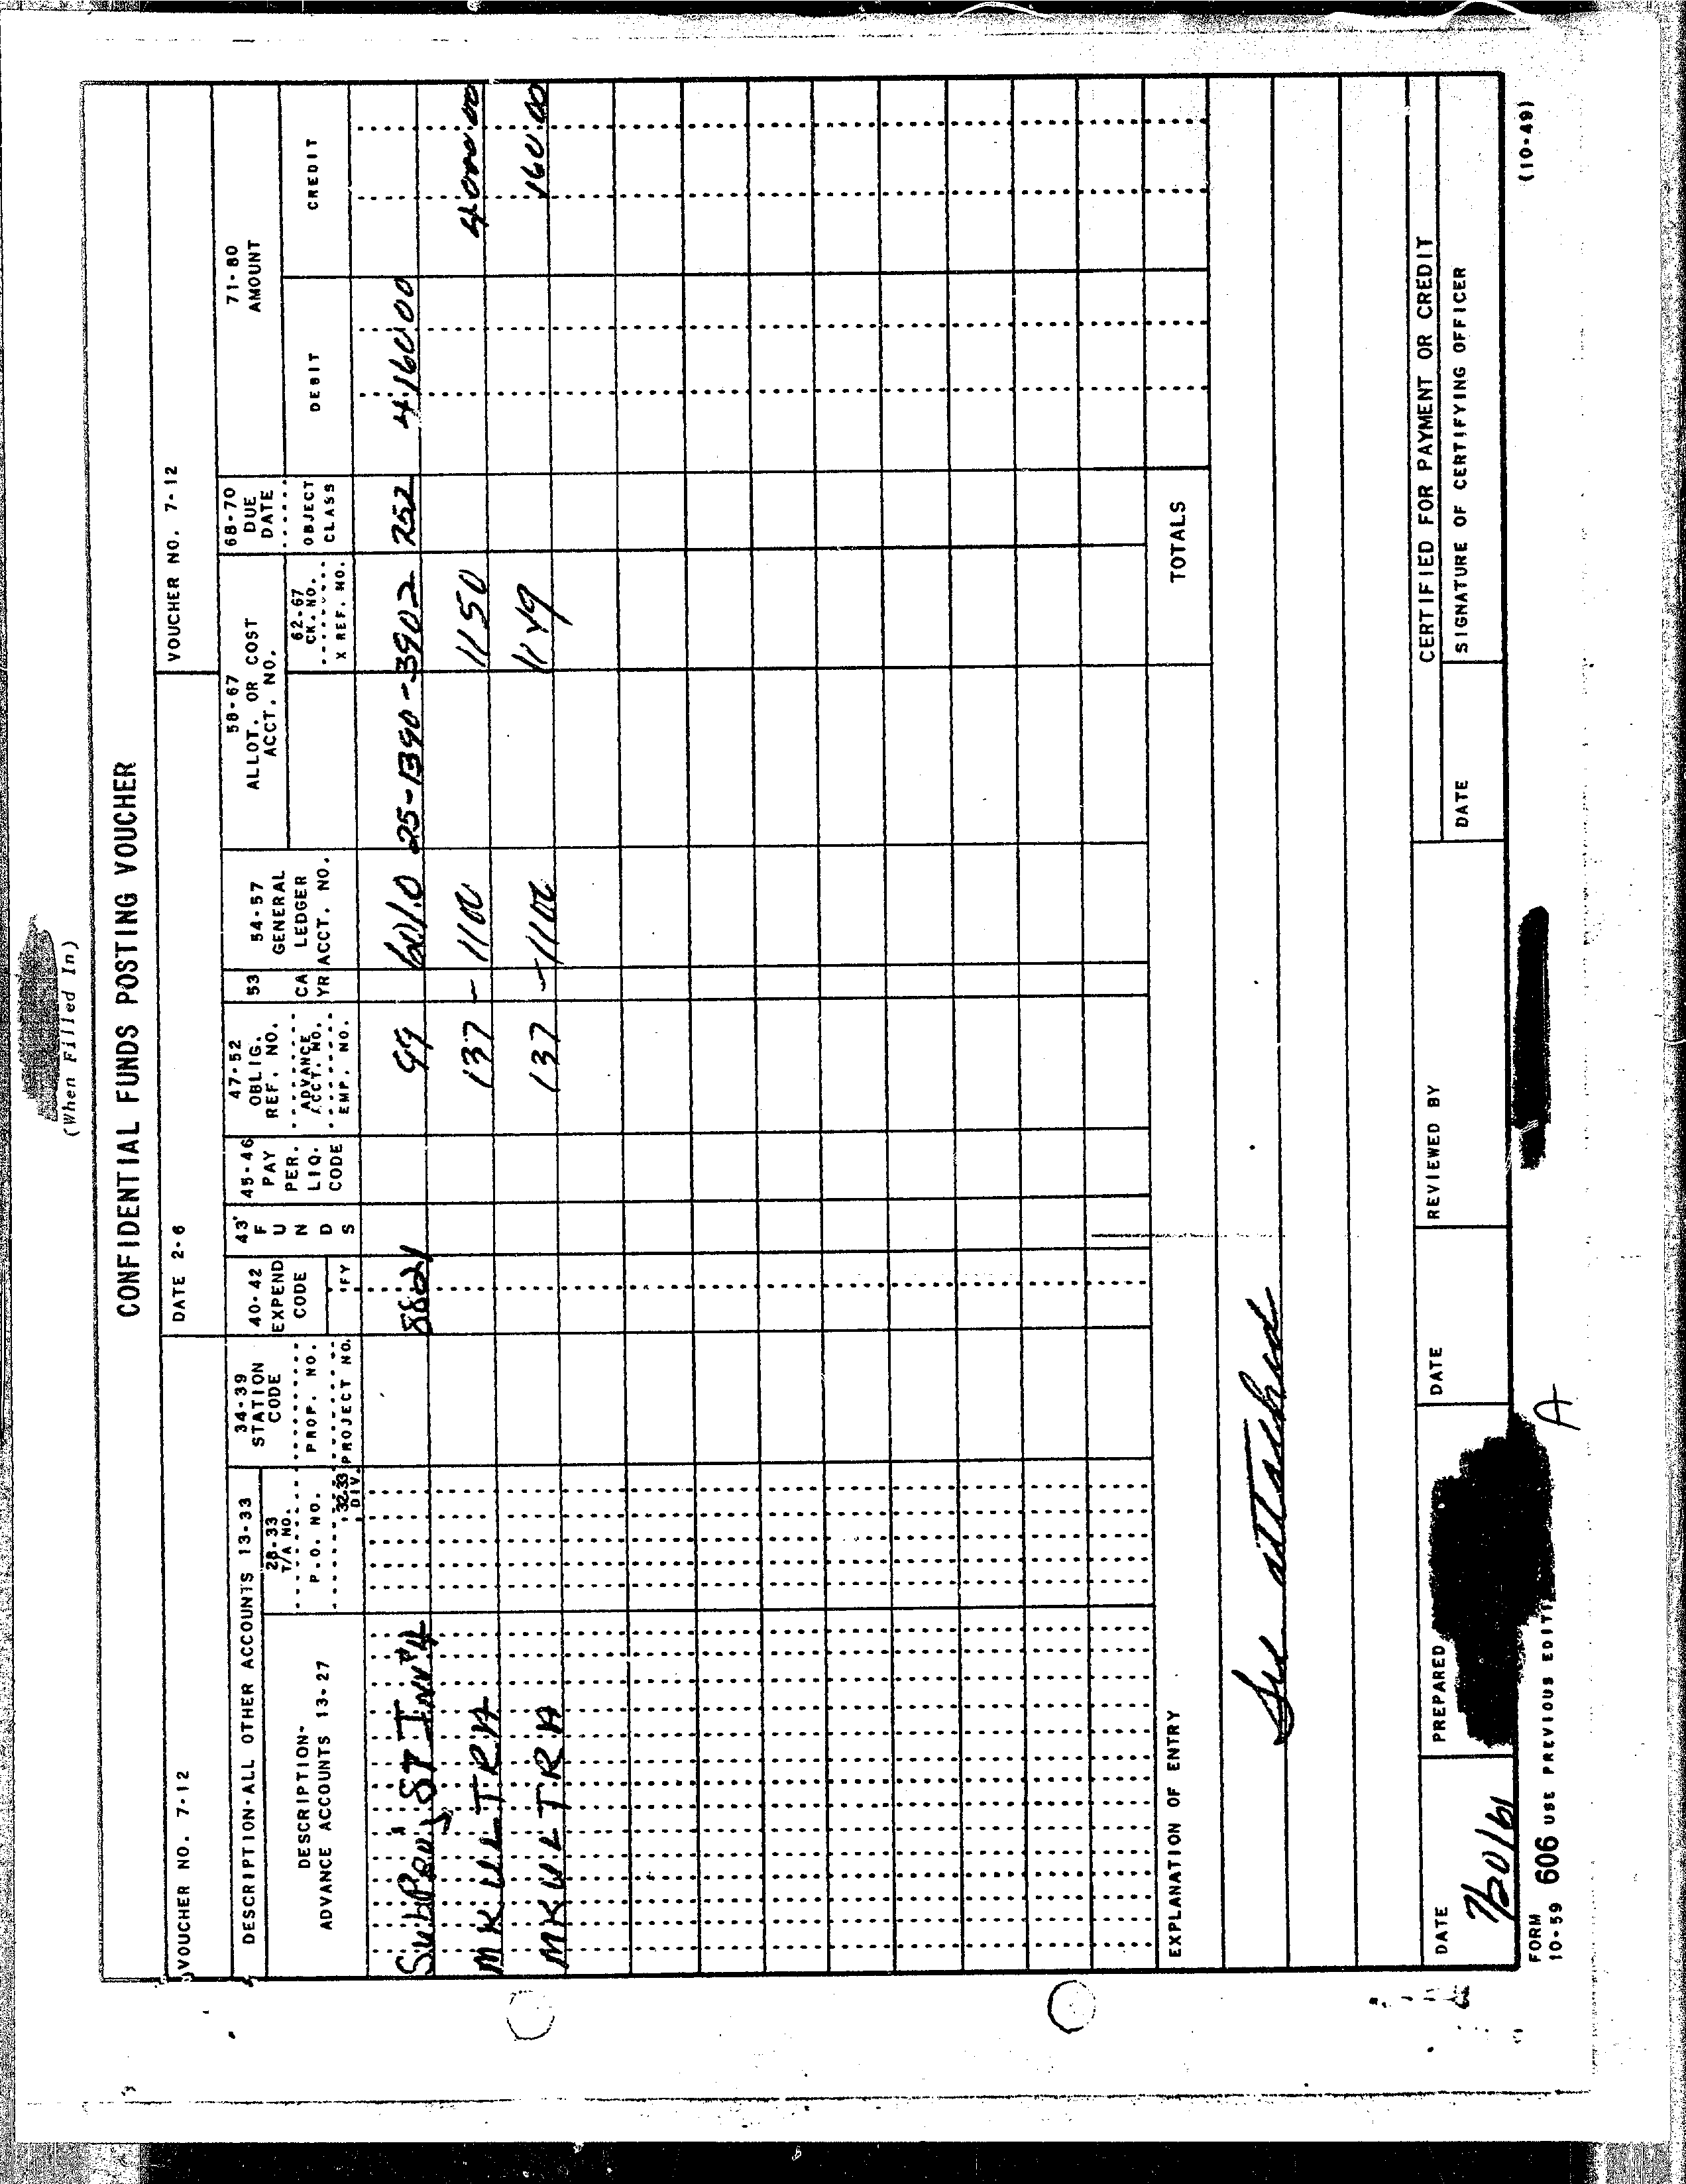 (When Filled In)
CONFIDENTIAL FUNDS POSTING VOUCHER
VOUCHER NO. 7-12
DATE 2-6
VOUCHER NO. 7-12
DESCRIPTION-ALL OTHER ACCOUNTS 13-33
DESCRIPTION-
ADVANCE ACCOUNTS 13-27
28-33
T/A NO.
P.O. NO.
32-33
DIV.
34-39
STATION
CODE
PROP. NO.
PROJECT NO.
40-42
EXPEND
CODE
FY
43
F
U
N
D
S
45-46
PAY
PER.
LIQ.
CODE
47-52
OBLIG.
REF. NO.
ADVANCE
ACCT. NO.
EMP. NO.
53
CA
YR
54-57
GENERAL
LEDGER
ACCT. NO.
58-67
ALLOT. OR COST
ACCT. NO.
62-67
CK. NO.
X REF. NO.
68-70
DUE
DATE
OBJECT
CLASS
71-80
AMOUNT
DEBIT
CREDIT
99 601.0 25-1390-3902 252 4160 00
MKULTRA 137 - 1100 1150 4000.00
MKULTRA 137 - 1100 1149 160.00
TOTALS
EXPLANATION OF ENTRY
See attached
CERTIFIED FOR PAYMENT OR CREDIT
DATE
PREPARED
DATE
REVIEWED BY
DATE
SIGNATURE OF CERTIFYING OFFICER
FORM
10-59 606 USE PREVIOUS
A
(10-49)